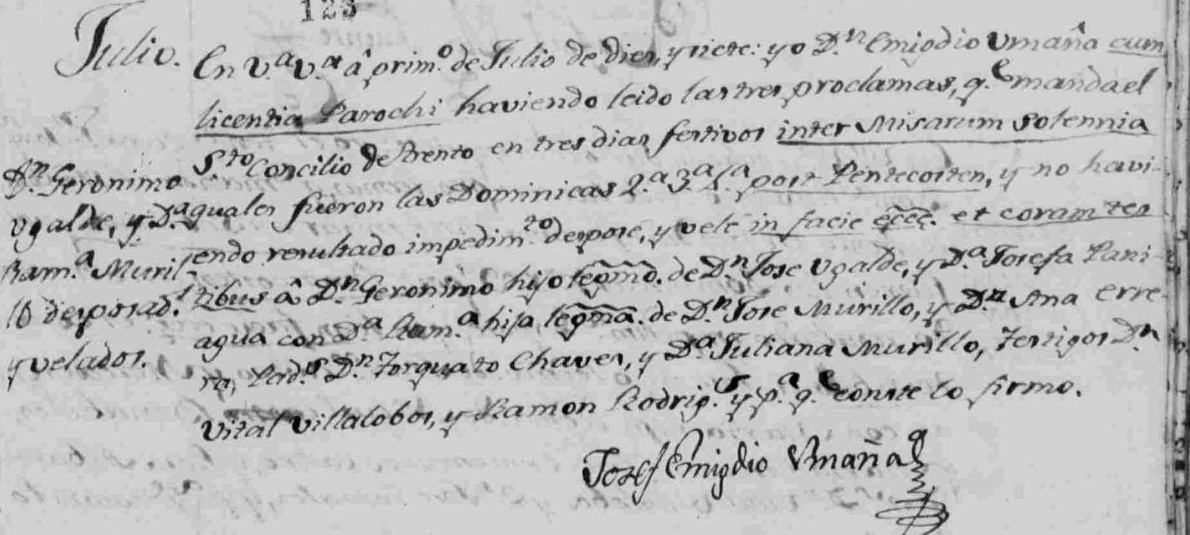 123
Julio.
Dn. Geronimo
Ugalde, y Da.
Ram.a Muril-
lo desposad.s
y velados.
En V.a V.a â prim.o de Julio de diez, y siete: yo D.n Emigdio Vmaña cum
licentia Parochi haviendo leido las tres proclamas, q.e manda el
S.to Concilio de Trento en tres dias festivos inter Misarum Solemnia
quales fueron las Dominicas 2.a 3.a 4.a post Pentecosten, y no havi-
endo resultado impedim.to despose, y velé in facie ecce. et coram tes
tibus â D.n Geronimo hijo legmo. de D.n Jose Ugalde, y D.a Josefa Pani-
agua con D.a Ram.a hija legma. de D.n Jose Murillo, y D.a Ana Erre-
ra, Pad.s D.n Torquato Chaves, y D.a Juliana Murillo, Testigos D.n
Vital Villalobos, y Ramon Rodrig.s y p.a q.e conste lo firmo.
Josef Emigdio Vmaña